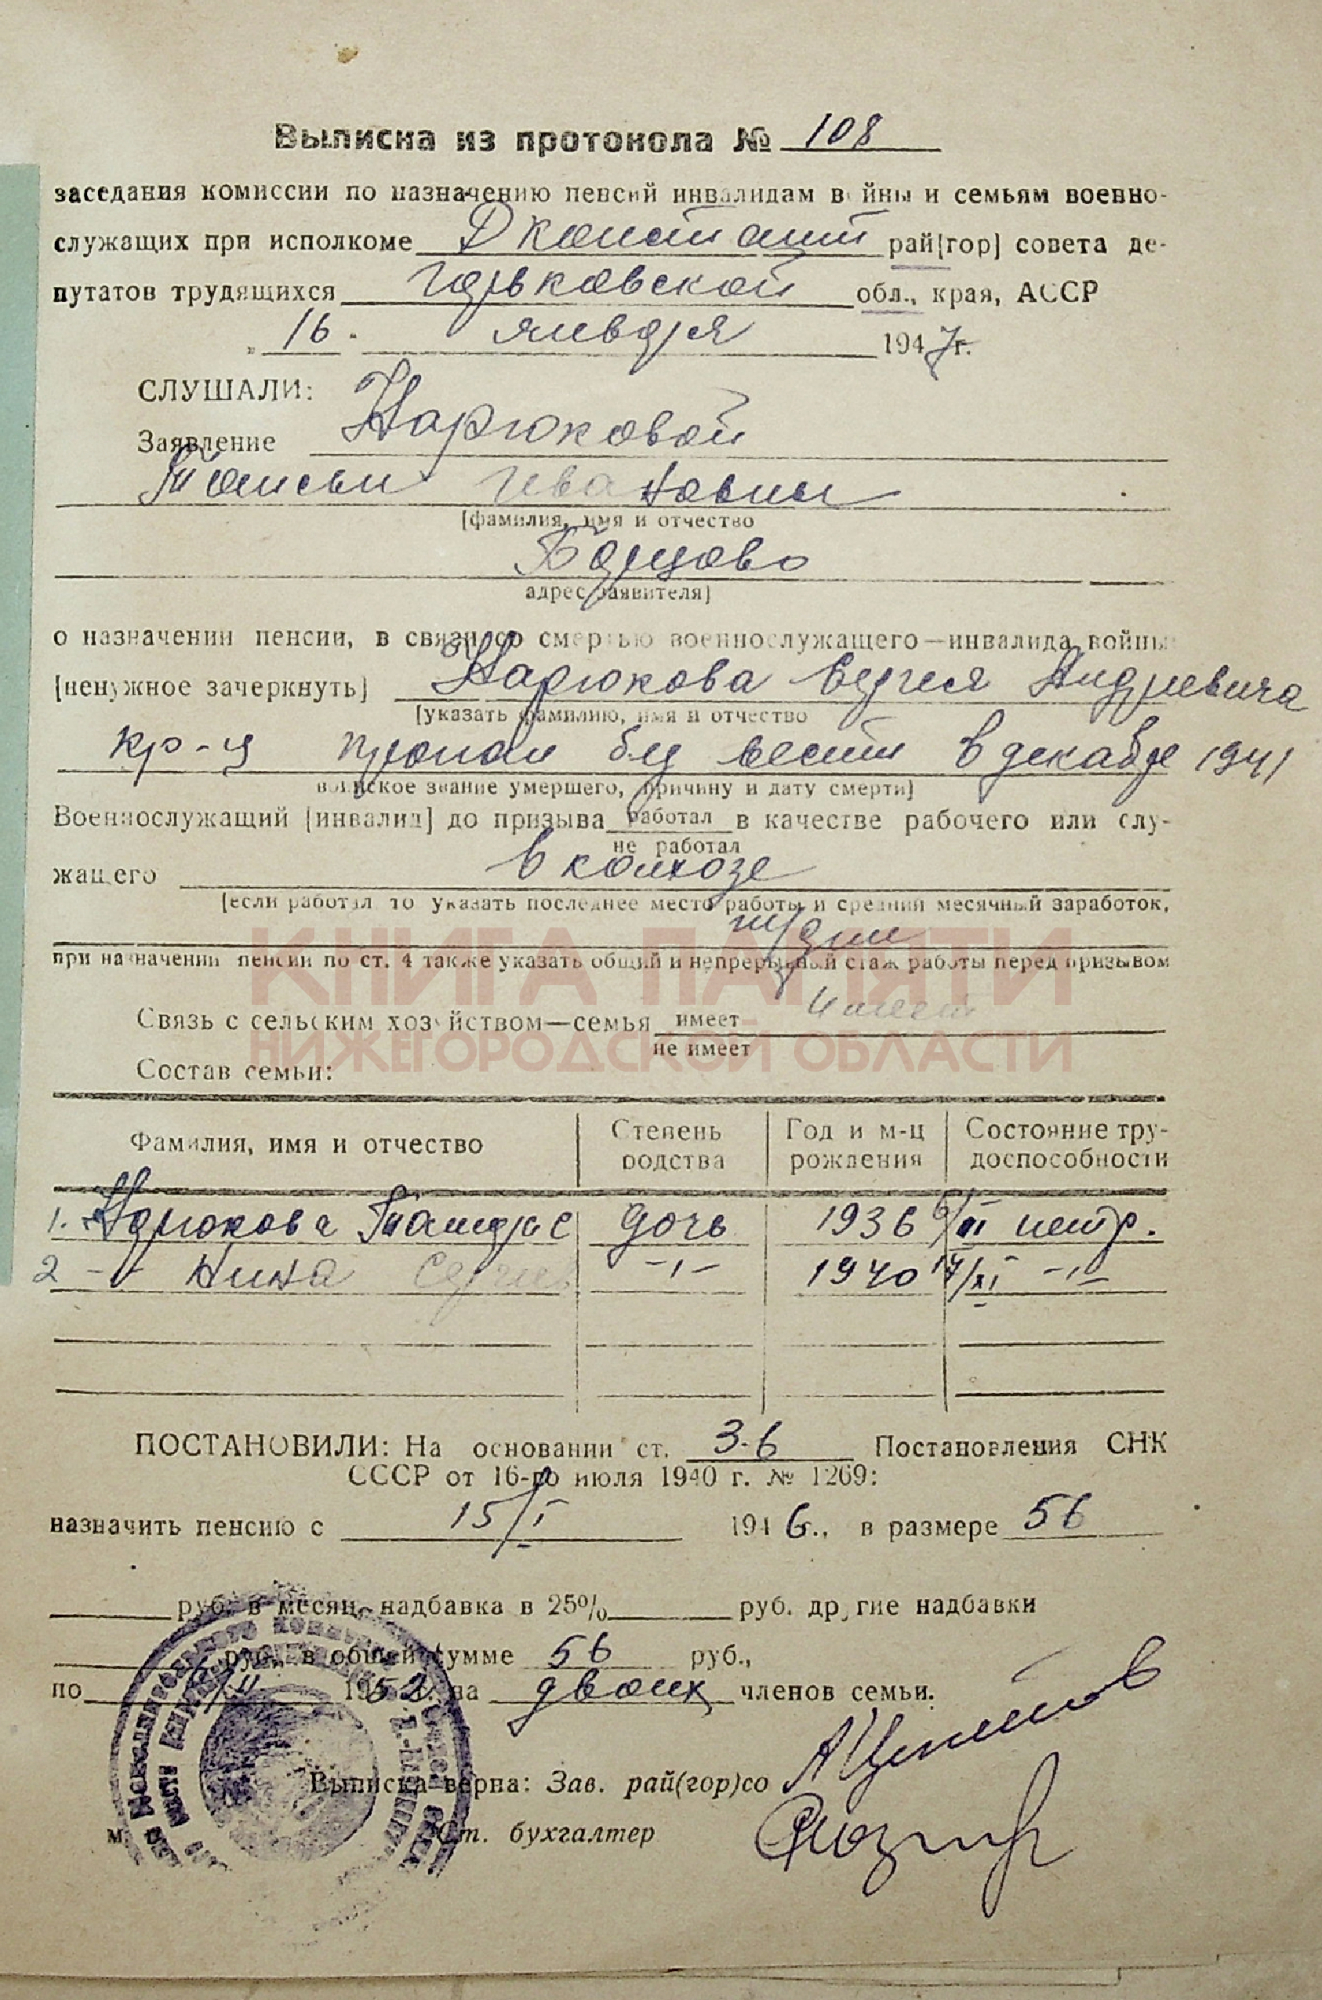 Выписка из протокола № 108
заседания комиссии по назначению пенсий инвалидам войны и семьям военно-
служащих при исполкоме Дконстант рай[гор] совета де-
путатов трудящихся Горьковской обл., края, АССР
„16" января 1947г.
СЛУШАЛИ:
Заявление Нарюковой
Таисьи Ивановны
[фамилия, имя и отчество
Борцово
адрес заявителя]
о назначении пенсии, в связи со смертью военнослужащего—инвалида войны
[ненужное зачеркнуть] Нарюкова Сергея Андреевича
[указать фамилию, имя и отчество
кр-ц пропал без вести в декабре 1941
воинское звание умершего, причину и дату смерти]
Военнослужащий [инвалид] до призыва работал в качестве рабочего или слу-
не работал
жащего в колхозе
[если работал то указать последнее место работы и средний месячный заработок,
т/дни
при назначении пенсии по ст. 4 также указать общий и непрерывный стаж работы перед призывом
КНИГА ПАМЯТИ
НИЖЕГОРОДСКОЙ ОБЛАСТИ
Связь с сельским хозяйством—семья имеет Имеет
не имеет
Состав семьи:
Фамилия, имя и отчество Степень родства Год и м-ц рождения Состояние трудоспособности
1. Нарюкова Тамара С дочь 1936 6/II нетр.
2 -"- Нина Сергеев -"- 1940 17/XI -"-
ПОСТАНОВИЛИ: На основании ст. 3-6 Постановления СНК
СССР от 16-го июля 1940 г. № 1269:
назначить пенсию с 15/I 1946г., в размере 56
руб. в месяц, надбавка в 25% руб. другие надбавки
руб., в общей сумме 56 руб.,
по 6/II 1952г. на двоих членов семьи.
Выписка верна: Зав. рай(гор)со
М. П. Ст. бухгалтер